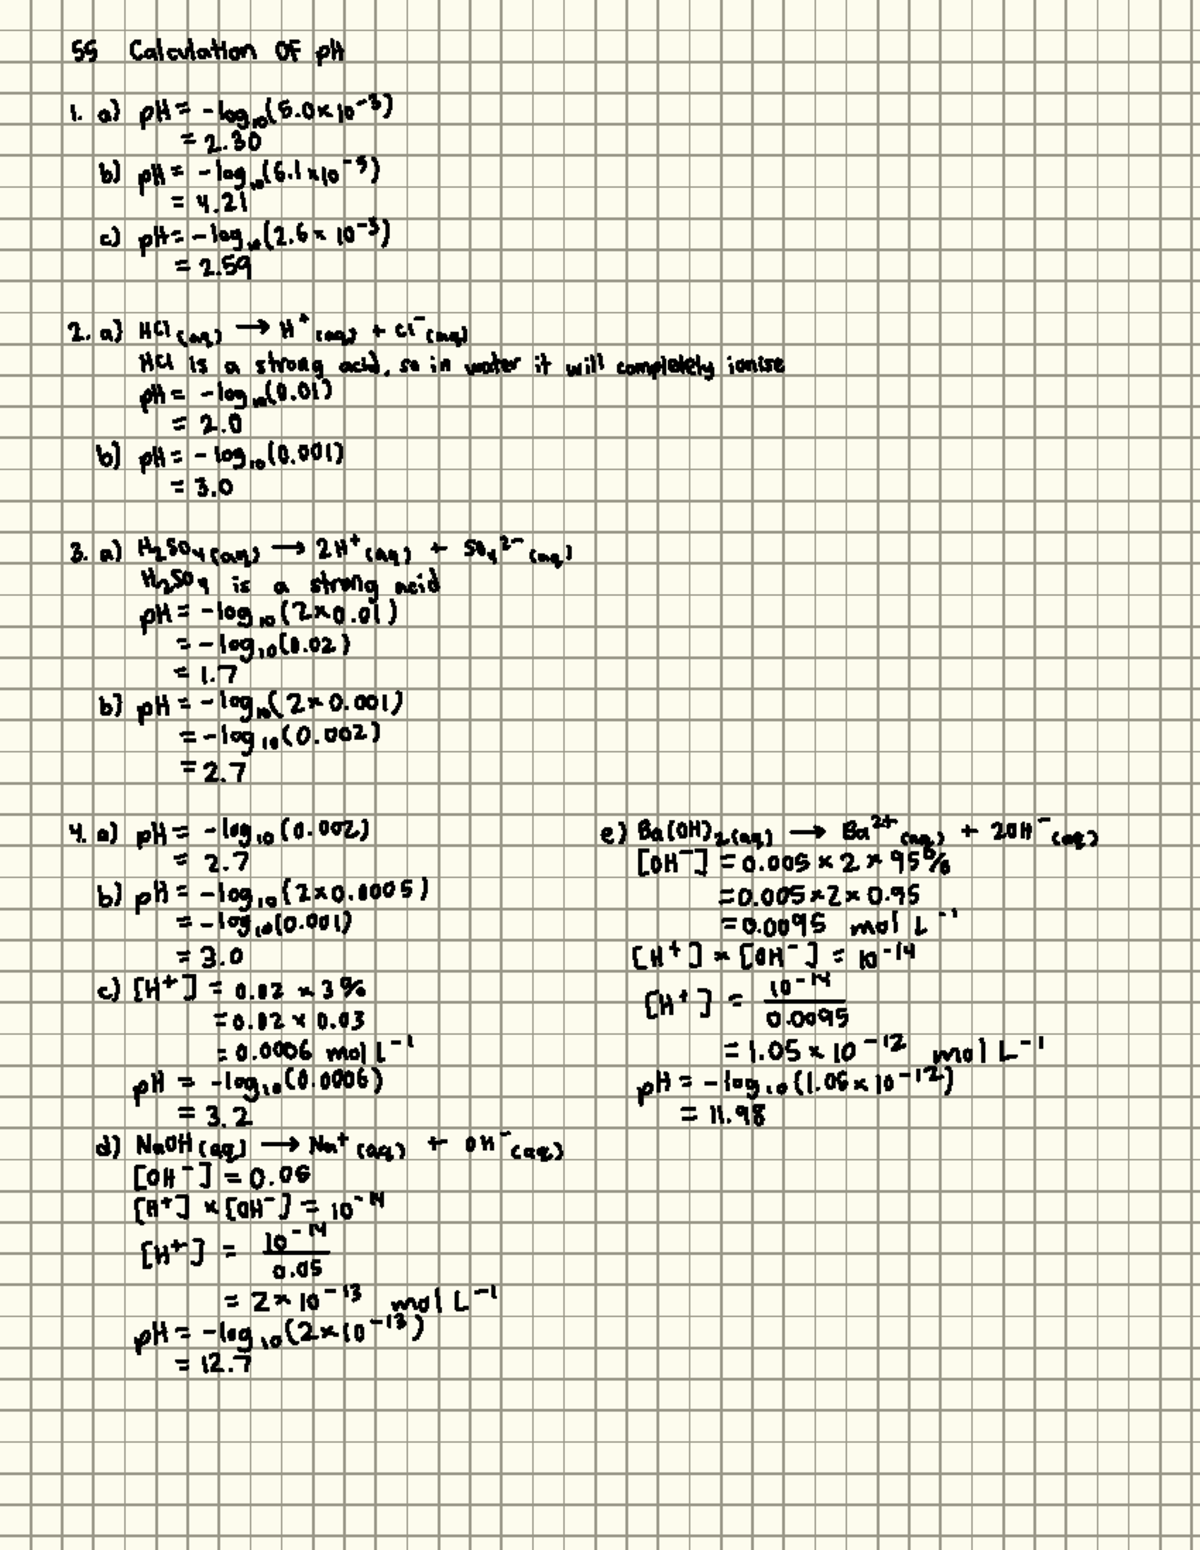 55 Calculation OF pH
1. a) pH = -log₁₀(5.0×10⁻³)
= 2.30
b) pH = -log₁₀(6.1×10⁻⁵)
= 4.21
c) pH = -log₁₀(2.6×10⁻³)
= 2.59
2. a) HCl(aq) → H⁺(aq) + Cl⁻(aq)
HCl is a strong acid, so in water it will completely ionise
pH = -log₁₀(0.01)
= 2.0
b) pH = -log₁₀(0.001)
= 3.0
3. a) H₂SO₄(aq) → 2H⁺(aq) + SO₄²⁻(aq)
H₂SO₄ is a strong acid
pH = -log₁₀(2×0.01)
= -log₁₀(0.02)
= 1.7
b) pH = -log₁₀(2×0.001)
= -log₁₀(0.002)
= 2.7
4. a) pH = -log₁₀(0.002)
= 2.7
b) pH = -log₁₀(2×0.0005)
= -log₁₀(0.001)
= 3.0
c) [H⁺] = 0.02 × 3%
= 0.02 × 0.03
= 0.0006 mol L⁻¹
pH = -log₁₀(0.0006)
= 3.2
d) NaOH(aq) → Na⁺(aq) + OH⁻(aq)
[OH⁻] = 0.05
[H⁺] × [OH⁻] = 10⁻¹⁴
[H⁺] = 10⁻¹⁴
0.05
= 2×10⁻¹³ mol L⁻¹
pH = -log₁₀(2×10⁻¹³)
= 12.7
e) Ba(OH)₂(aq) → Ba²⁺(aq) + 2OH⁻(aq)
[OH⁻] = 0.005 × 2 × 95%
= 0.005×2×0.95
= 0.0095 mol L⁻¹
[H⁺] × [OH⁻] = 10⁻¹⁴
[H⁺] = 10⁻¹⁴
0.0095
= 1.05×10⁻¹² mol L⁻¹
pH = -log₁₀(1.05×10⁻¹²)
= 11.98